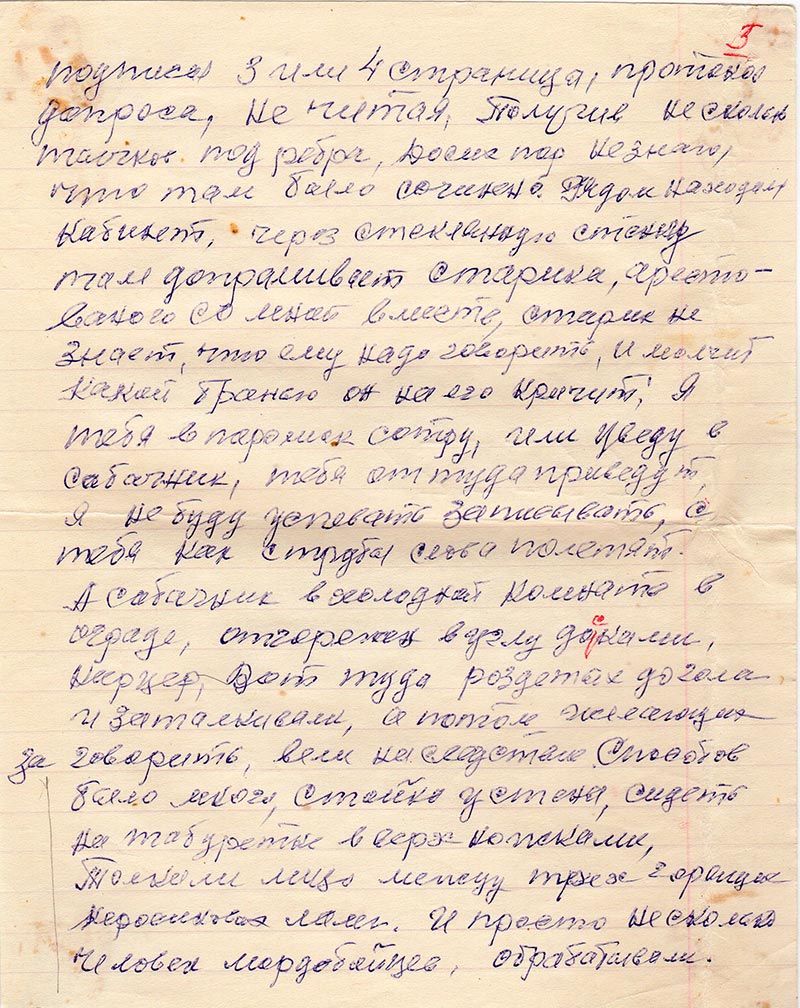 3
подписал 3 или 4 страница, протокол
допроса, не читая, Получив несколько
толчков под ребра, До сих пор не знаю,
что там было сочинено. Рядом находился
кабинет, через стеклянную стенку
там допрашивает старика, аресто-
ваного со мной вместе, старик не
знает, что ему надо говорить, и молчит
какой бранью он на его кричит; Я
тебя в порошок сотру, или уведу в
сабачник, тебя оттуда приведут,
я не буду успевать записывать, с
тебя как с трубы слова полетят.
А сабачник в холодной комната в
ограде, отгорожен в углу досками,
карцер, Вот туда роздетых догола
и заталкивали, а потом желающих
за говорить, вели на следствие Способов
было много, стойка у стена, сидеть
на табуретье вверх ножками,
Толкали лицо между трех горящих
керосиновых ламп. И просто несколько
человек мордобойцев, обрабатывали.